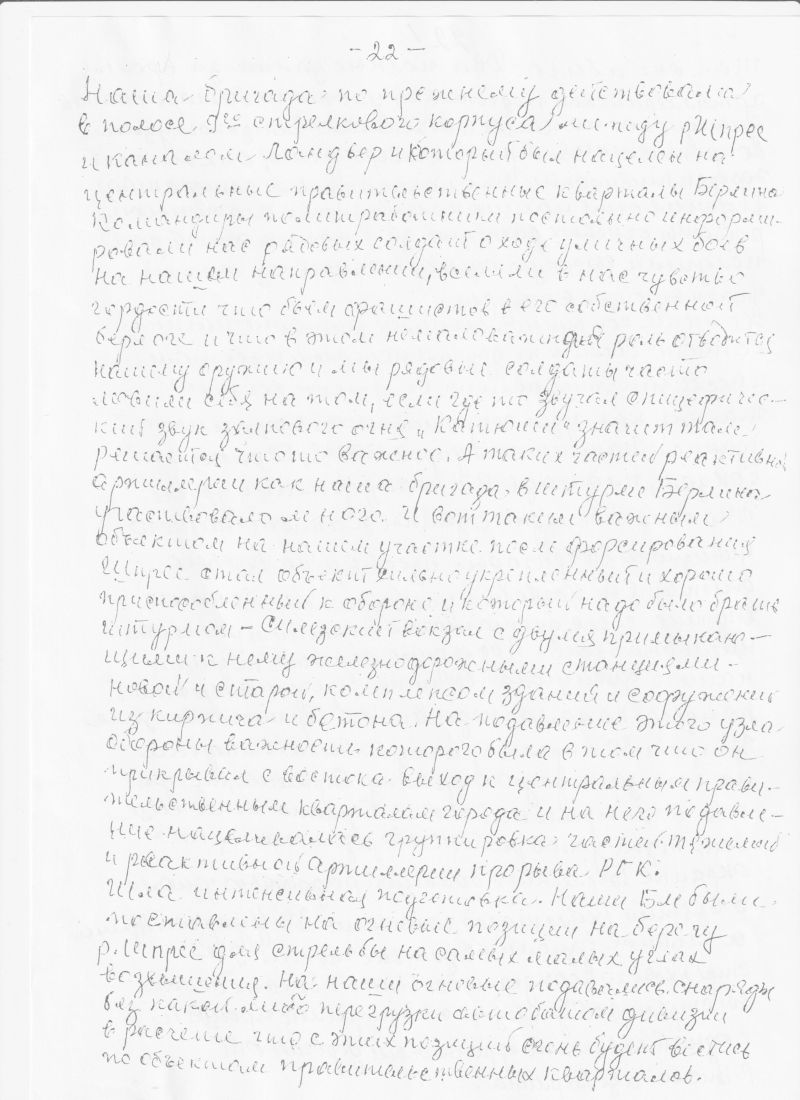 - 22 -
Наша бригада по прежнему действовала
в полосе 9го стрелкового корпуса между р Шпрее
и каналом Ландвер и который был нацелен на
центральные правительственные кварталы Берлина
Командиры политработники постоянно информи-
ровали нас рядовых солдат о ходе уличных боев
на нашем направлении, вселяли в нас чувство
гордости что бьем фашистов в его собственной
берлоге и что в этом немаловажная роль отводится
нашему оружию и мы рядовые солдаты часто
ловили себя на том, если где то звучал специфичес-
кий звук залпового огня „Катюши" значит там
решается что то важное. А таких частей реактивной
артиллерии как наша бригада в штурме Берлина
участвовало много. И вот таким важным
объектом на нашем участке после форсирования
Шпрее стал объект сильно укрепленный и хорошо
приспособленный к обороне и который надо было брать
штурмом – Силезский вокзал с двумя примыкаю-
щими к нему железнодорожными станциями -
новой и старой, комплексом зданий и сооружений
из кирпича и бетона. На подавление этого узла
обороны важность которого была в том что он
прикрывал с востока выход к центральным прави-
тельственным кварталам города и на его подавле-
ние нацеливалась группировка частей тяжелой
и реактивной артиллерии прорыва РГК.
Шла интенсивная подготовка. Наши БМ были
поставлены на огневые позиции на берегу
р. Шпрее для стрельбы на самых малых углах
возвышения. На наши огневые подавались снаряды
без какой либо перегрузки автобатом дивизии
в расчете что с этих позиций огонь будет вестись
по объектам правительственных кварталов.